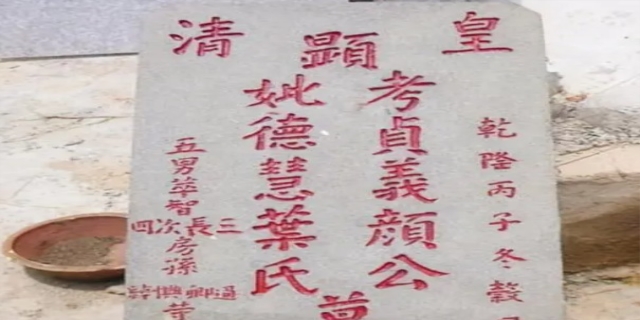 皇顯清
乾隆丙子冬穀
考貞義顏公
妣德慧葉氏
五男萃智
三長次四
房孫